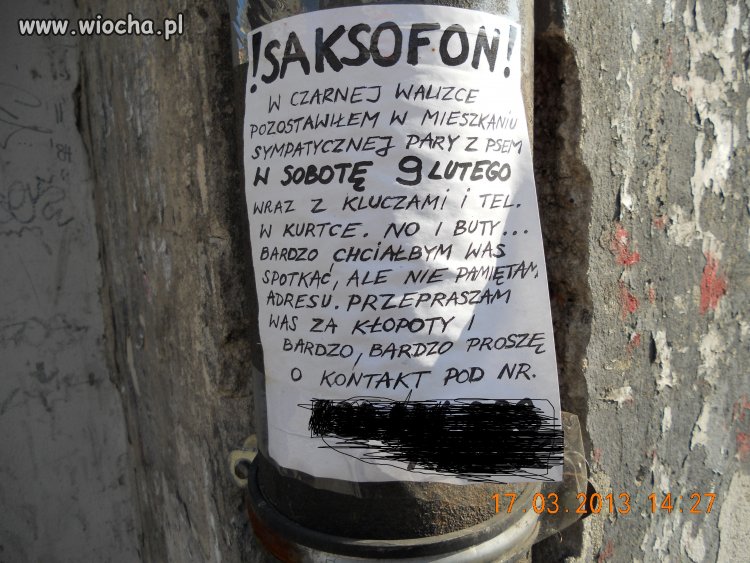 www.wiocha.pl
!SAKSOFON!
W CZARNEJ WALIZCE
POZOSTAWIŁEM W MIESZKANIU
SYMPATYCZNEJ PARY Z PSEM
W SOBOTĘ 9 LUTEGO
WRAZ Z KLUCZAMI I TEL.
W KURTCE. NO I BUTY...
BARDZO CHCIAŁBYM WAS
SPOTKAĆ, ALE NIE PAMIĘTAM
ADRESU. PRZEPRASZAM
WAS ZA KŁOPOTY I
BARDZO, BARDZO PROSZĘ
O KONTAKT POD NR.
17.03.2013 14:27